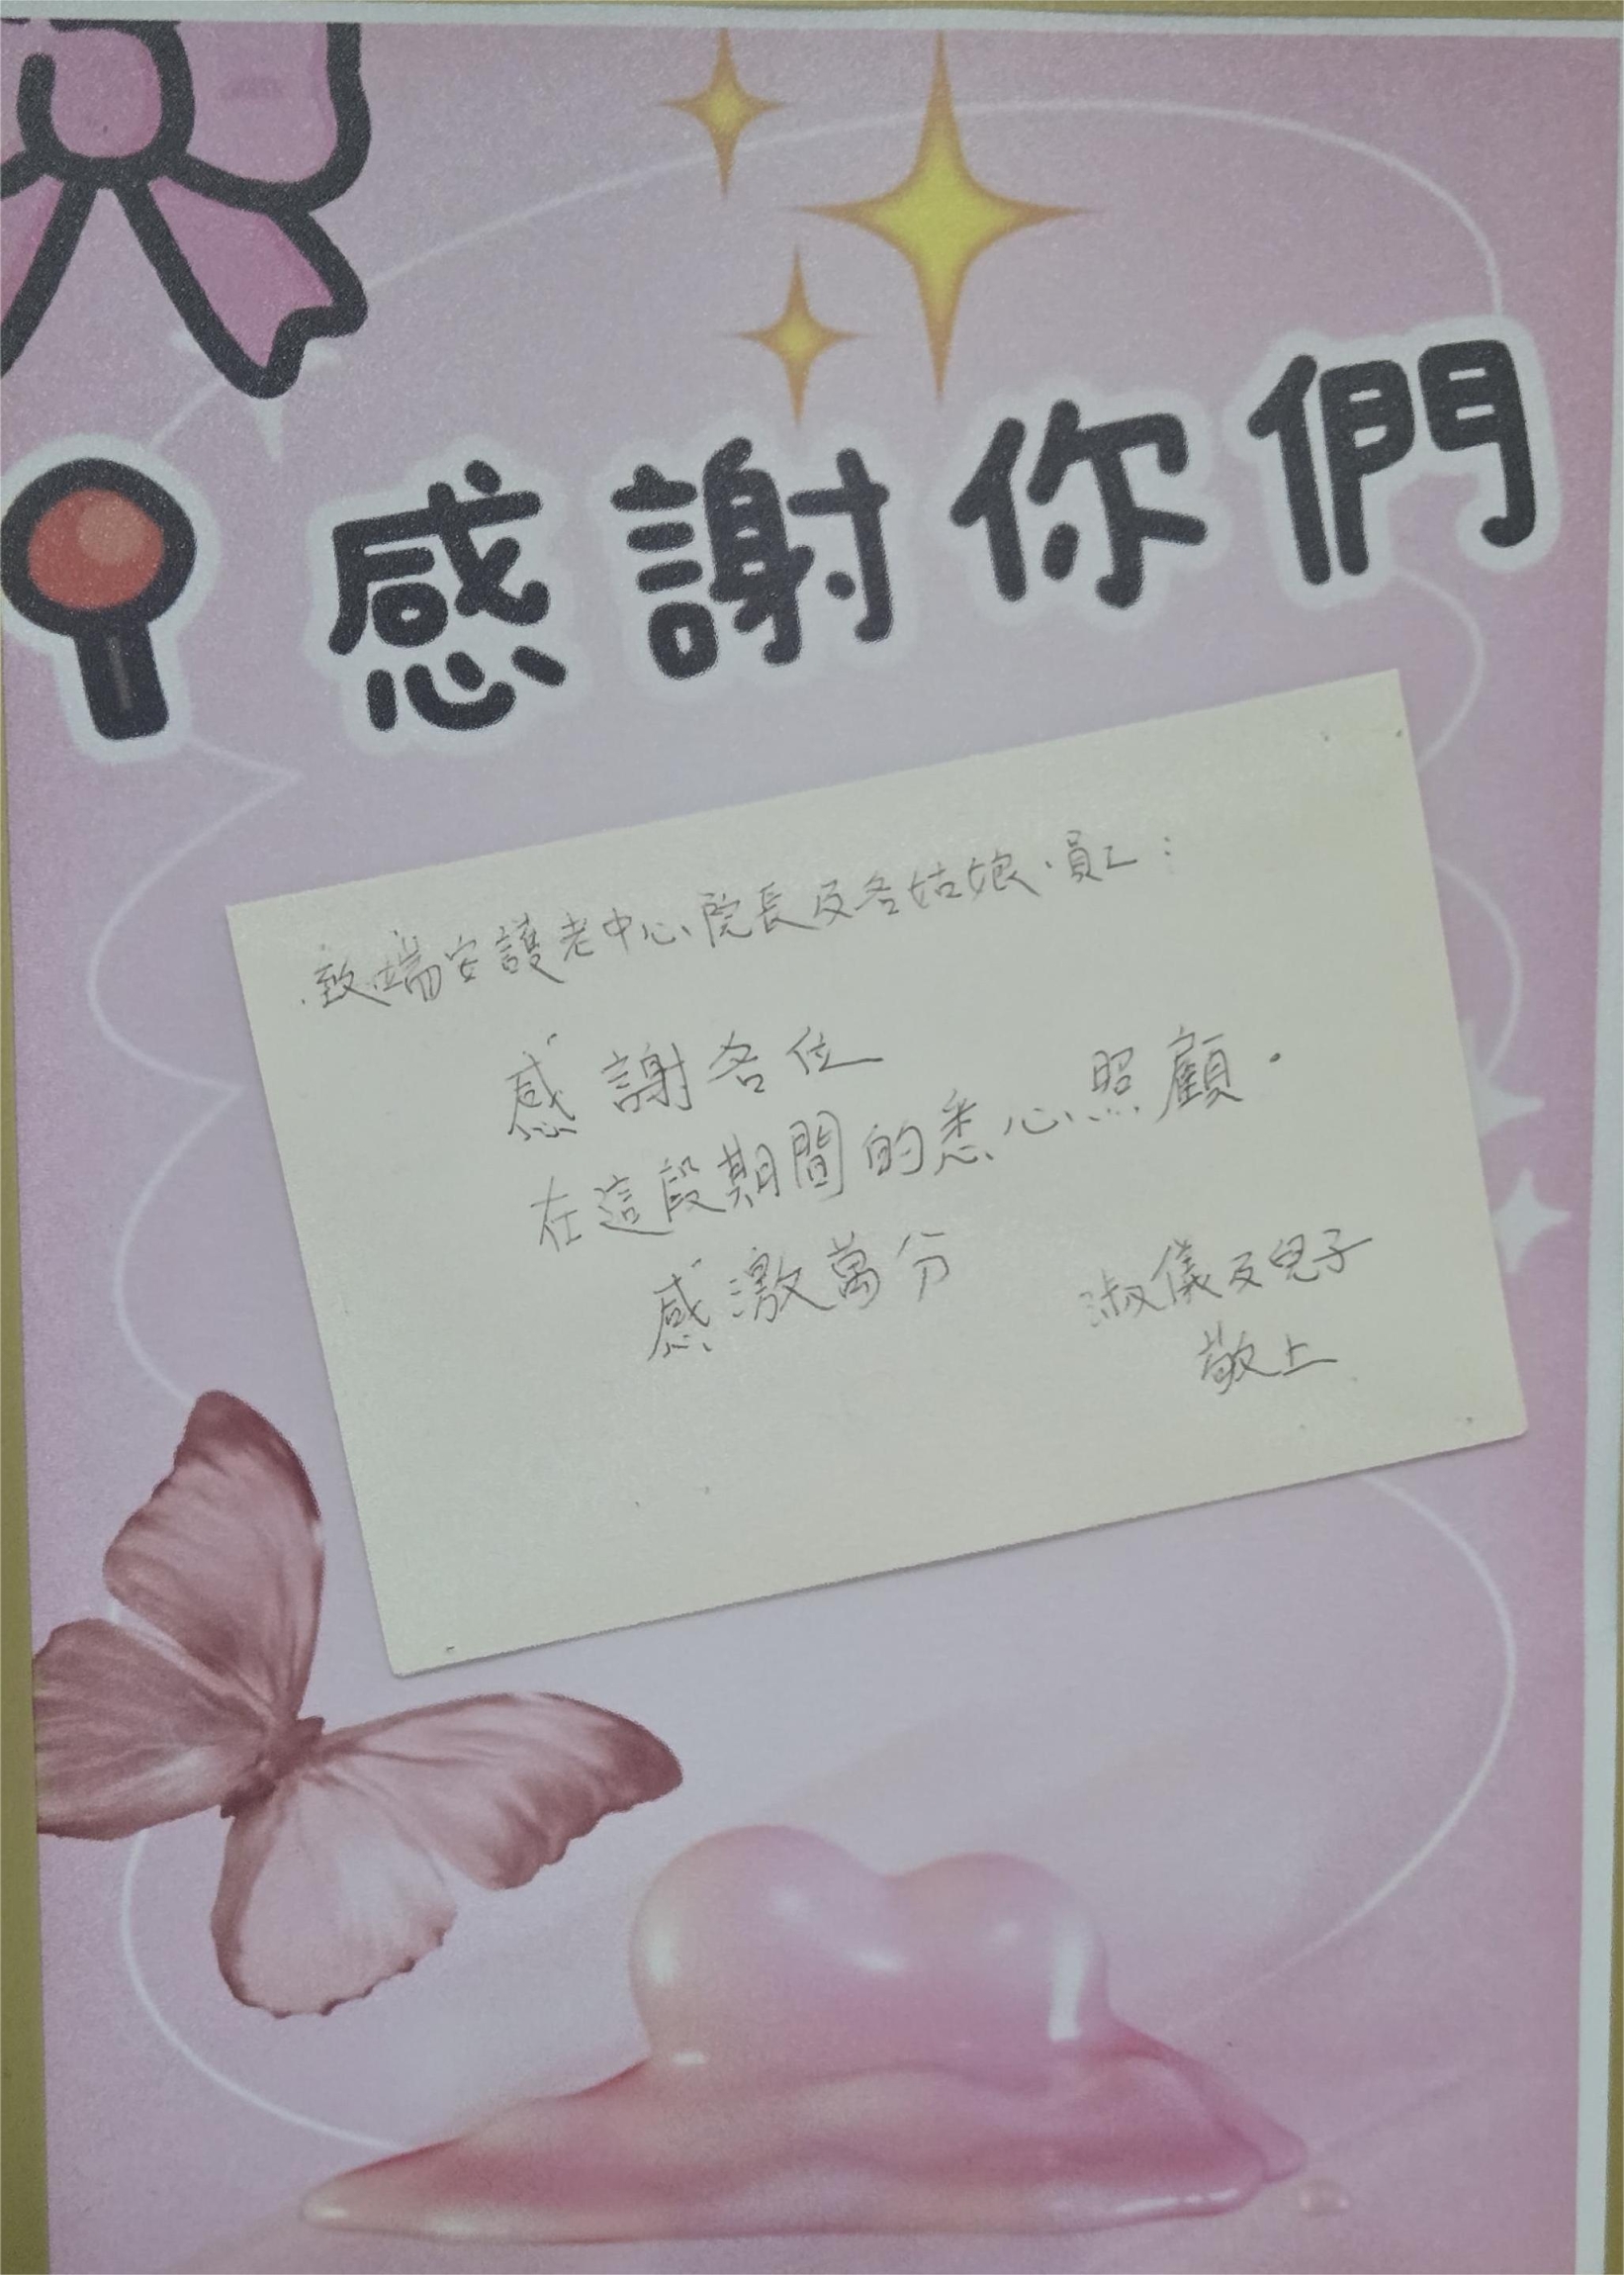 感謝你們
致端安護老中心院長及各姑娘、員工：
感謝各位
在這段期間的悉心照顧.
感激萬分
淑儀及兒子
敬上